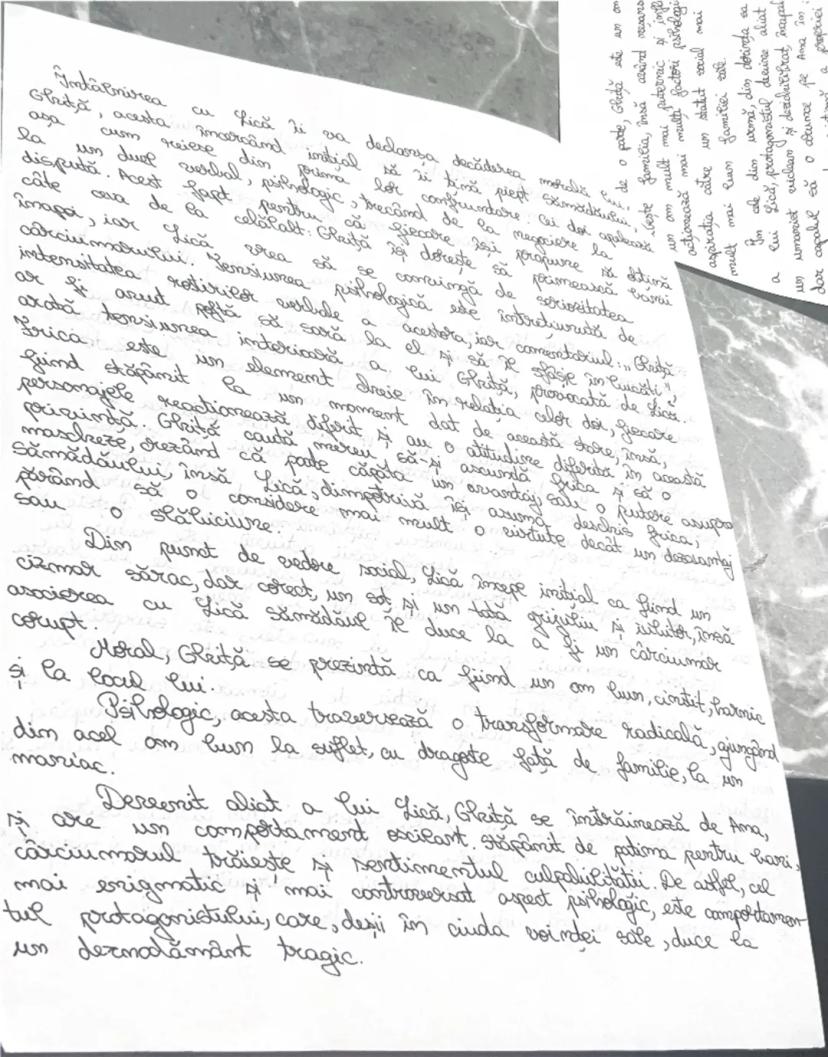 Întâlnirea cu Lică îi va declanșa decăderea morală lui
Ghiță, acesta încercând inițial să îi țină piept Sămădăului,
așa cum reiese din prima lor confruntare. Cei doi apelează
la un duel verbal, psihologic, trecând de la negociere la
dispută. Acest fapt pentru că fiecare își propune să obțină
câte ceva de la celălalt: Ghiță își dorește să primească banii
înapoi, iar Lică vrea să se convingă de seriozitatea
cârciumarului. Tensiunea psihologică este întreținută de
intensitatea rostirilor verbale a acestora, iar comentariul: "Ghiță
ar fi avut poftă să sară la el și să îl sfâșie în bucăți",
arată tensiunea interioară a lui Ghiță, provocată de Lică.
Frica este un element cheie în relația celor doi, fiecare
fiind stăpânit la un moment dat de această stare, însă,
personajele reacționează diferit și au o atitudine diferită în această
privință. Ghiță caută mereu să-și ascundă frica și să o
mascheze, crezând că poate căpăta un avantaj sau o putere asupra
Sămădăului, însă Lică, dimpotrivă își asumă deschis frica,
părând să o considere mai mult o virtute decât un dezavantaj
sau o slăbiciune.
Din punct de vedere social, Lică începe inițial ca fiind un
cizmar sărac, dar corect, un soț și un tată grijuliu și iubitor, însă
asocierea cu Lică Sămădăul îl duce la a fi un cârciumar
corupt.
Moral, Ghiță se prezintă ca fiind un om bun, cinstit, harnic
și la locul lui.
Psihologic, acesta traversează o transformare radicală, ajungând
din acel om bun la suflet, cu dragoste față de familie, la un
maniac.
Devenit aliat a lui Lică, Ghiță se întrăinează de Ana,
și are un comportament oscilant. Stăpânit de patima pentru bani,
cârciumarul trăiește și sentimentul culpabilității. De altfel, cel
mai enigmatic și mai controversat aspect psihologic, este comportamen-
tul protagonistului, care, deși în ciuda voinței sale, duce la
un deznodământ tragic.
de o parte, Ghiță este un om
familia, însă având
un om mult mai puternic și
acționează mai mulți factori psihologici
apariția către un statut social mai
mult mai bun familiei sale.
În cele din urmă, din dorința sa
a lui Lică, protagonistul devine aliat
un umanist viclean și dezechilibrat,
dar capabil să o arunce pe Ana în